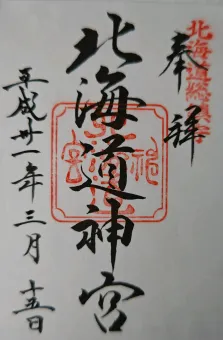 北海道総鎮守
奉拝
北海道神宮
平成廿一年三月十五日